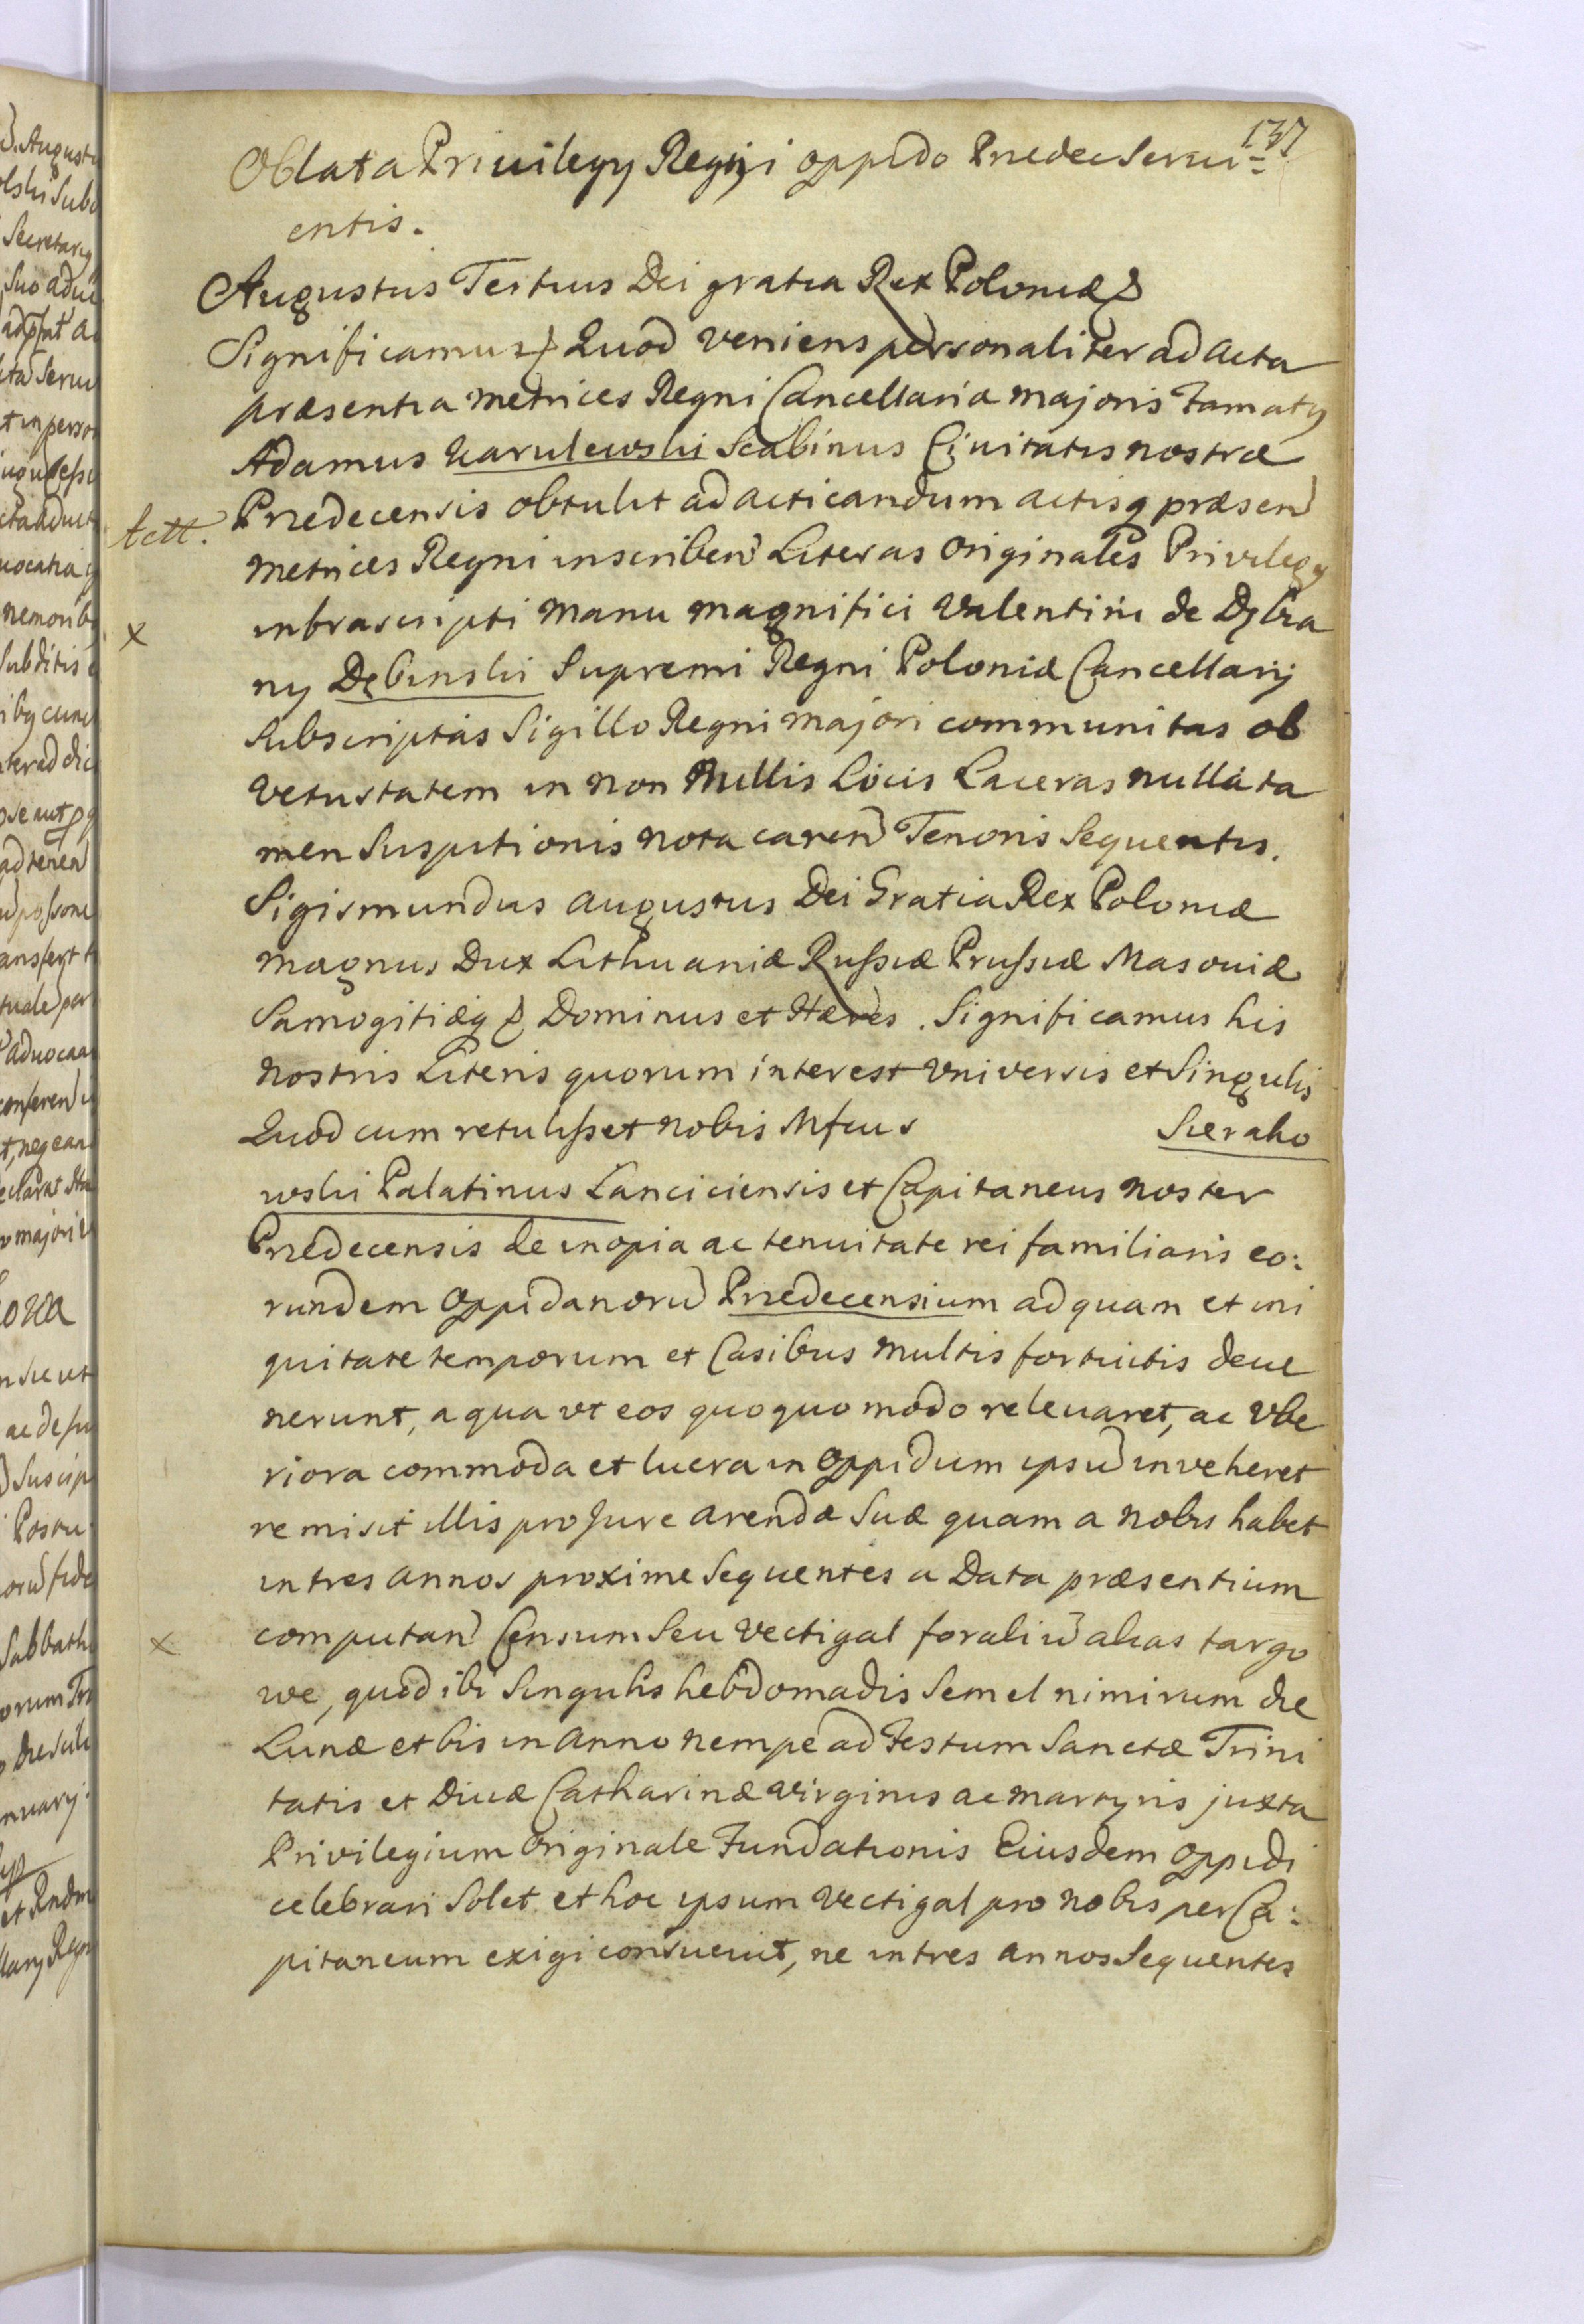 137
Oblata Privilegy Regÿi oppido Przedec Servi=
entis.
Augustus Tertius Dei gratia Rex Poloniæ &
Significamus & Quod veniens personaliter ad Acta
præsentia metrices Regni Cancellaria majoris Famatg
Adamus Karulewski Scabinus Civitatis nostræ
Przedecensis obtulit ad acticandum actisq præsen
metrices Regni inscriben Literas Originales Privilegy
infrascripti manu magnifici Valentini de Dębia
ny Debinski Supremi Regni Poloniæ Cancellarij
subscriptas Sigillo Regni majori communitas ob
vetustatem in non Nullis Locis Laceras nulla ta
men suspitionis nota caren Tenoris sequentis.
Sigismundus Augustus Dei Gratia Rex Poloniæ
magnus Dux Lithuaniæ Russiæ Prussiæ Masoviæ
Samogitiæq & Dominus et Hæres. Significamus his
nostris Literis quorum interest Universis et Singulis
Quod cum retulisset nobis Mfcus Sierako
wski Palatinus Lanciciensis et Capitaneus noster
Przedecensis de inopia ac tenuitate rei familiaris eo:
rundem Oppidanorū Przedecensium ad quam et ini
quitate temporum et Casibus multis fortuitis deve
nerunt, a qua vt eos quoquo modo relevaret, ac Vbe
riora commoda et lucra in Oppidum ipsū inveheret
remisit illis pro Jure arendæ suæ quam a nobis habet
in tres annos proxime sequentes a Data præsentium
computan Censum seu Vectigal foraliū alias targo
we, quod ibi singulis hebdomadis semel nimirum die
Lunæ et bis in Anno nempe ad Festum Sanctæ Trini
tatis et Divæ Catharinæ Virginis ac martyris juxta
Privilegium Originale Fundationis Eiusdem Oppidi
celebrari solet et hoc ipsum Vectigal pro nobis per Ca:
pitaneum exigi consuevit, ne in tres annos sequentes
x
x